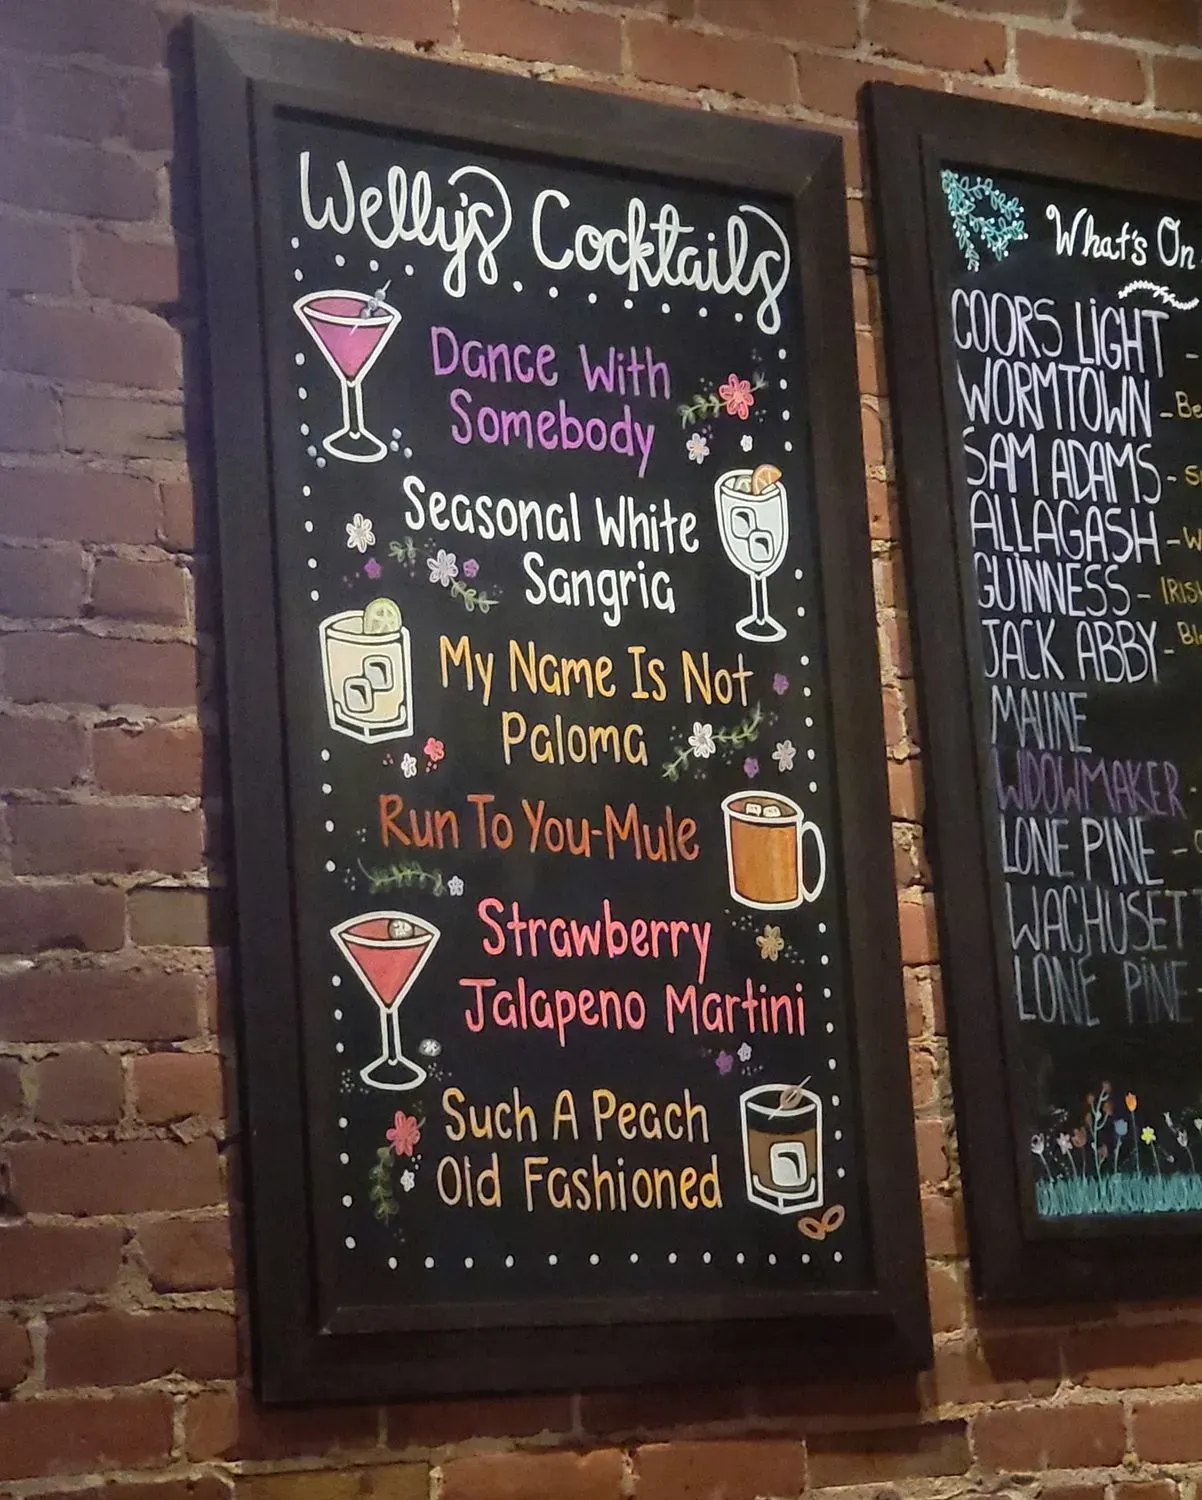 Welly's Cocktails
Dance With
Somebody
Seasonal White
Sangria
My Name Is Not
Paloma
Run To You-Mule
Strawberry
Jalapeno Martini
Such A Peach
Old Fashioned
What's On
COORS LIGHT -
WORMTOWN - Be
SAM ADAMS -
ALLAGASH - W
GUINNESS - IRIS
JACK ABBY -
MAINE
WIDOWMAKER -
LONE PINE -
WACHUSET
LONE PINE -